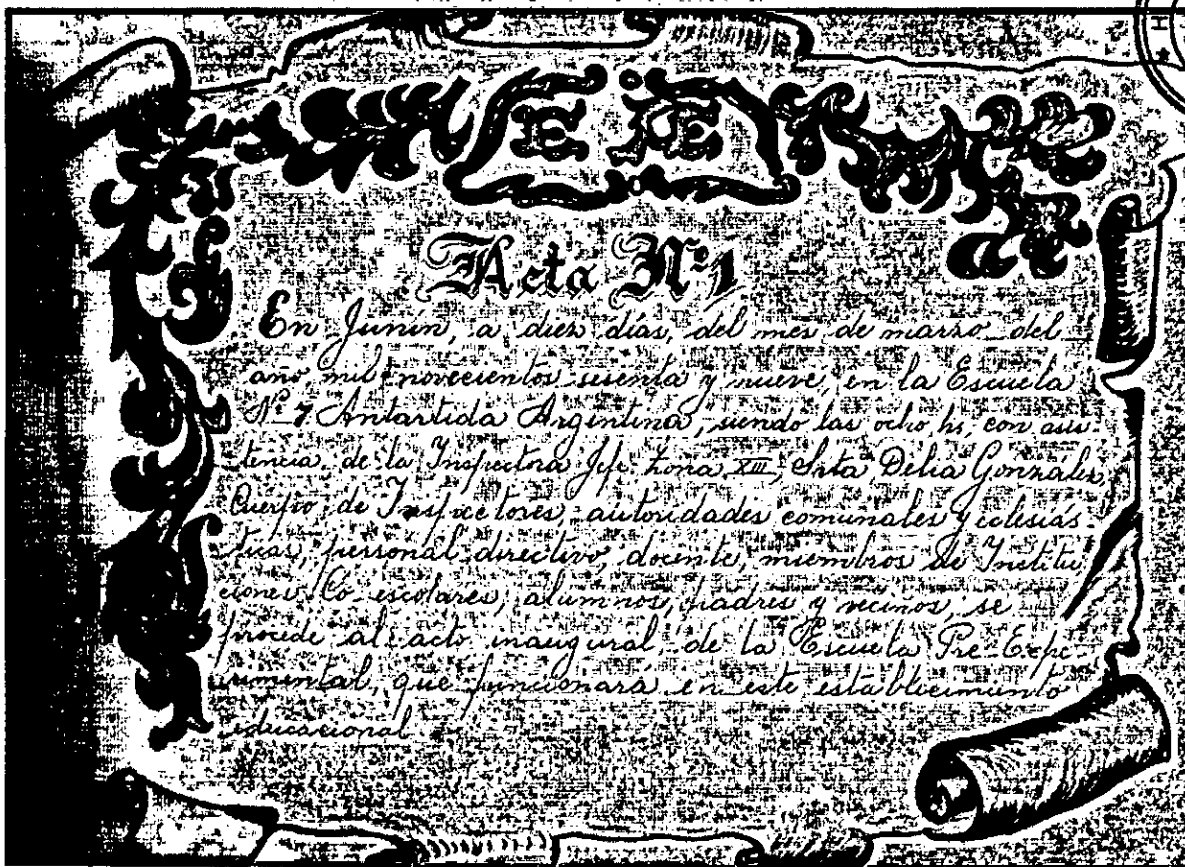 E E
Acta Nº 1
En Junín, a diez días, del mes de marzo del
año mil novecientos sesenta y nueve, en la Escuela
Nº 7 Antartida Argentina, siendo las ocho hs, con asis-
tencia de la Inspectora Jefe Zona XIII, Srta Delia González,
Cuerpo de Inspectores, autoridades comunales y eclesiás-
ticas, personal directivo, docente, miembros de Institu
ciones Co-escolares, alumnos, padres y vecinos, se
procede al acto inaugural de la Escuela Pre-Expe-
rimental, que funcionará en este establecimiento
educacional